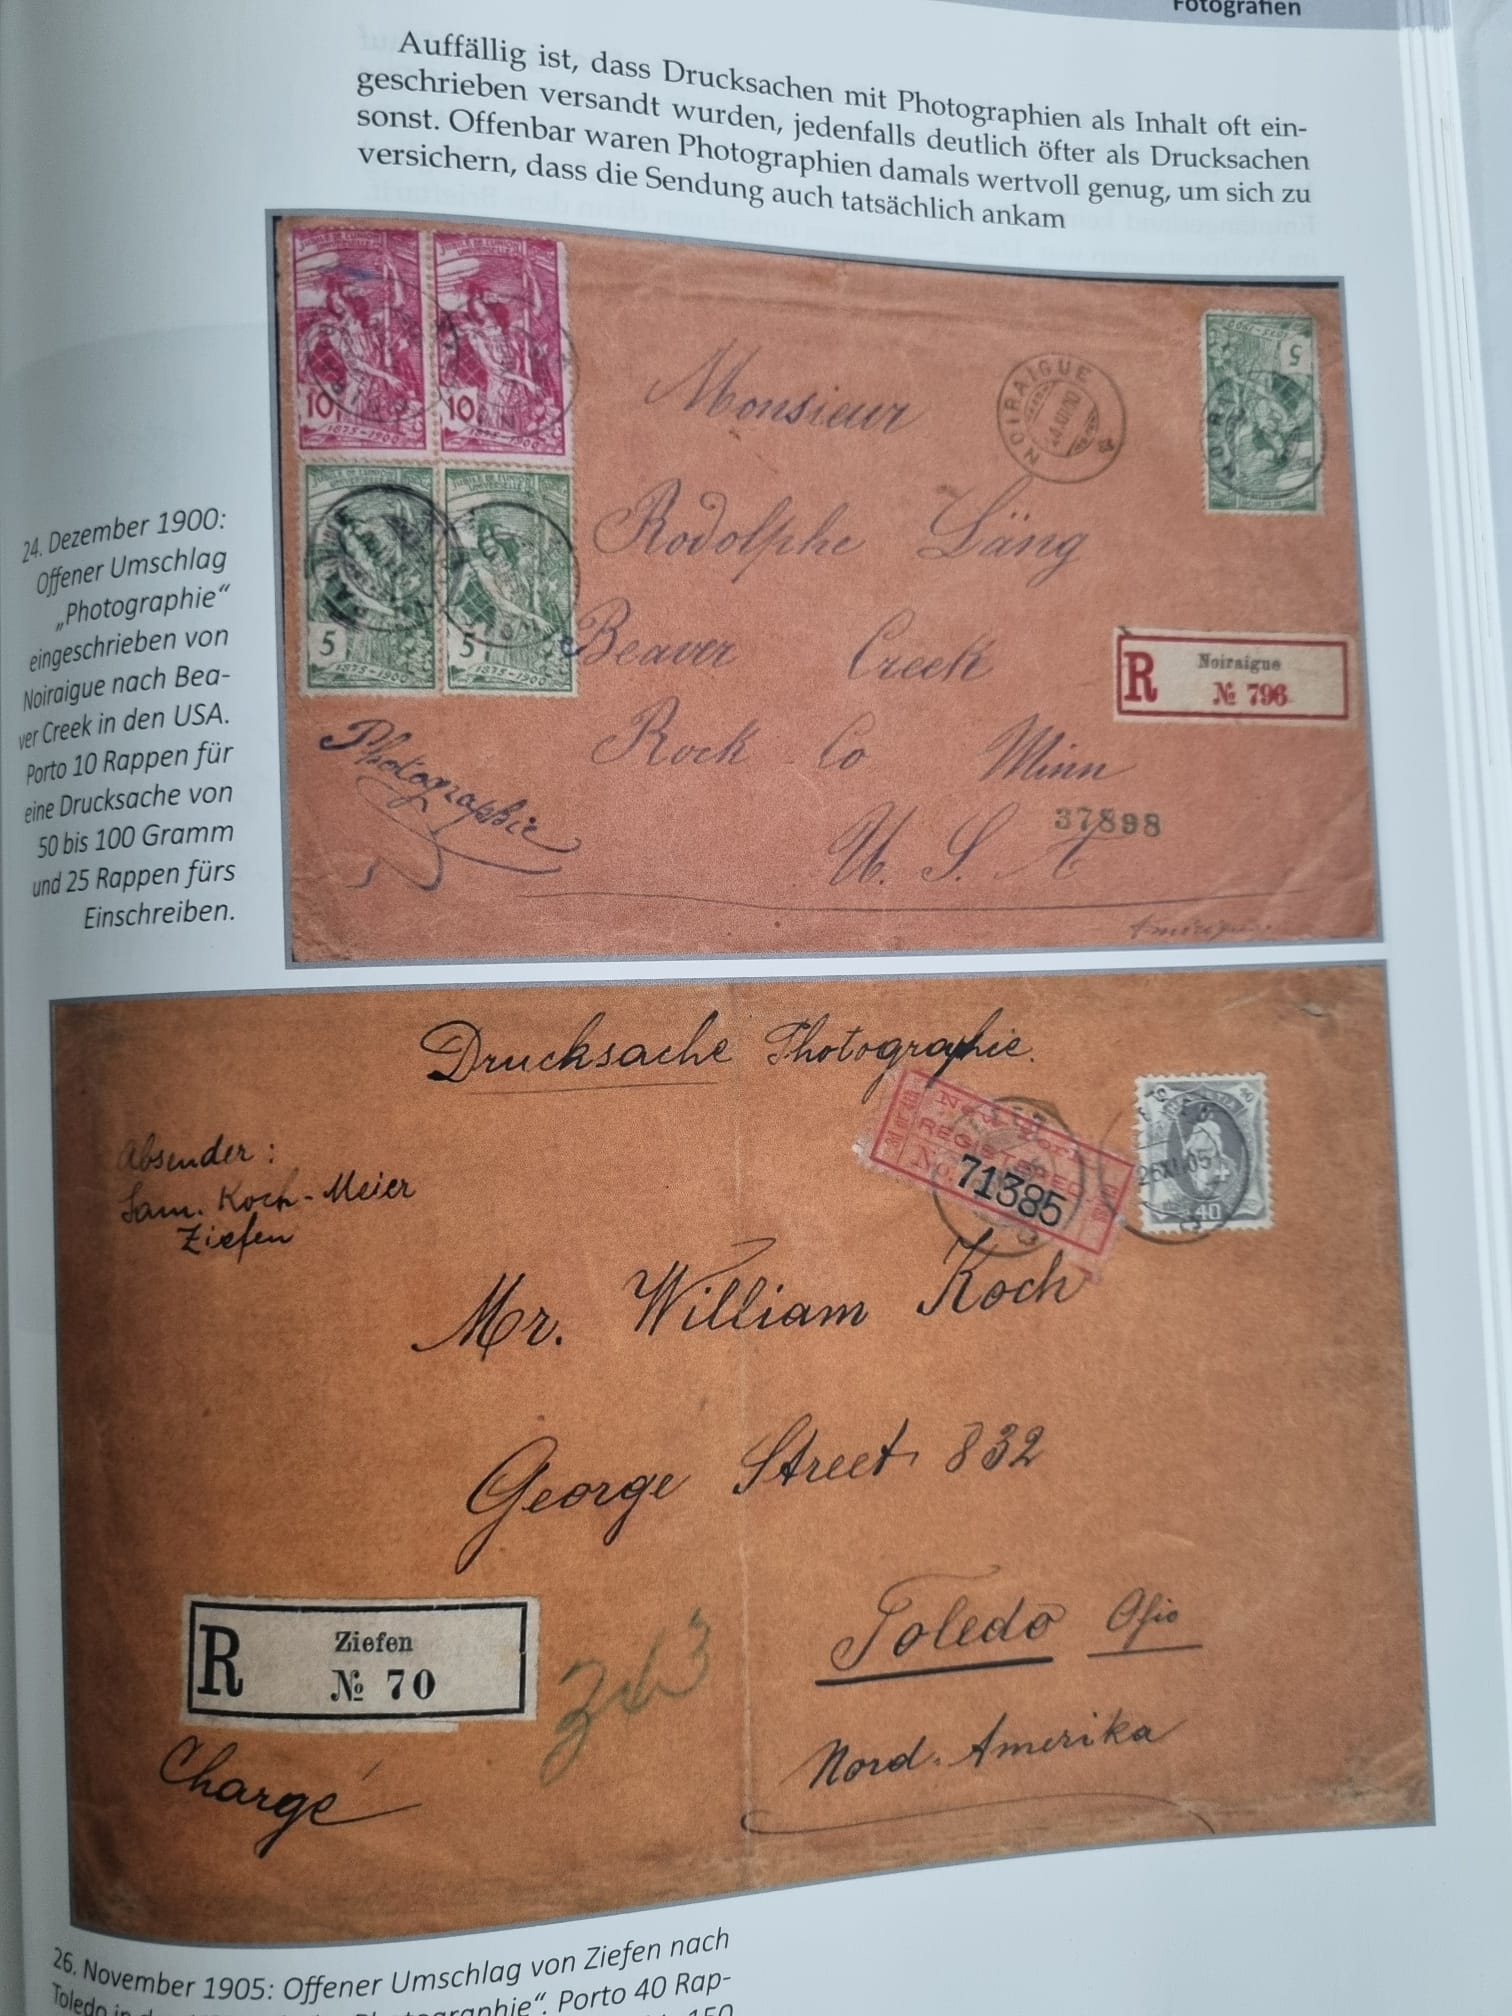 Fotografien
Auffällig ist, dass Drucksachen mit Photographien als Inhalt oft ein-
geschrieben versandt wurden, jedenfalls deutlich öfter als Drucksachen
sonst. Offenbar waren Photographien damals wertvoll genug, um sich zu
versichern, dass die Sendung auch tatsächlich ankam
24. Dezember 1900:
Offener Umschlag
„Photographie“
eingeschrieben von
Noiraigue nach Bea-
ver Creek in den USA.
Porto 10 Rappen für
eine Drucksache von
50 bis 100 Gramm
und 25 Rappen fürs
Einschreiben.
JUBILÉ DE L'UNION
UNIVERSELLE
10
1875-1900
JUBILÉ DE L'UNION
UNIVERSELLE
10
1875-1900
JUBILÉ DE L'UNION
5
1875-1900
JUBILÉ DE L'UNION
5
1875-1900
5
1875-1900
NOIRAIGUE
Monsieur
Rodolphe Läng
Beaver Creek
Rock Co Minn
U. S. A
Photographie
R
Noiraigue
№ 796
37898
Drucksache Photographie.
Absender:
Sam. Koch-Meier
Ziefen
New York
REGISTERED
No.
71385
40
26 XI 05
40
Mr. William Koch
George Street 832
Toledo Ohio
Nord-Amerika
R
Ziefen
№ 70
Chargé
26. November 1905: Offener Umschlag von Ziefen nach
Toledo in Photographie“. Porto 40 Rap-
150